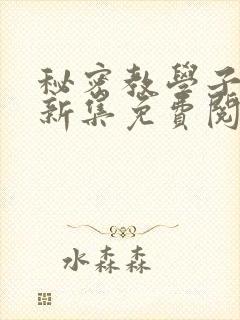 秘密教學子
新集免費閱
水森森